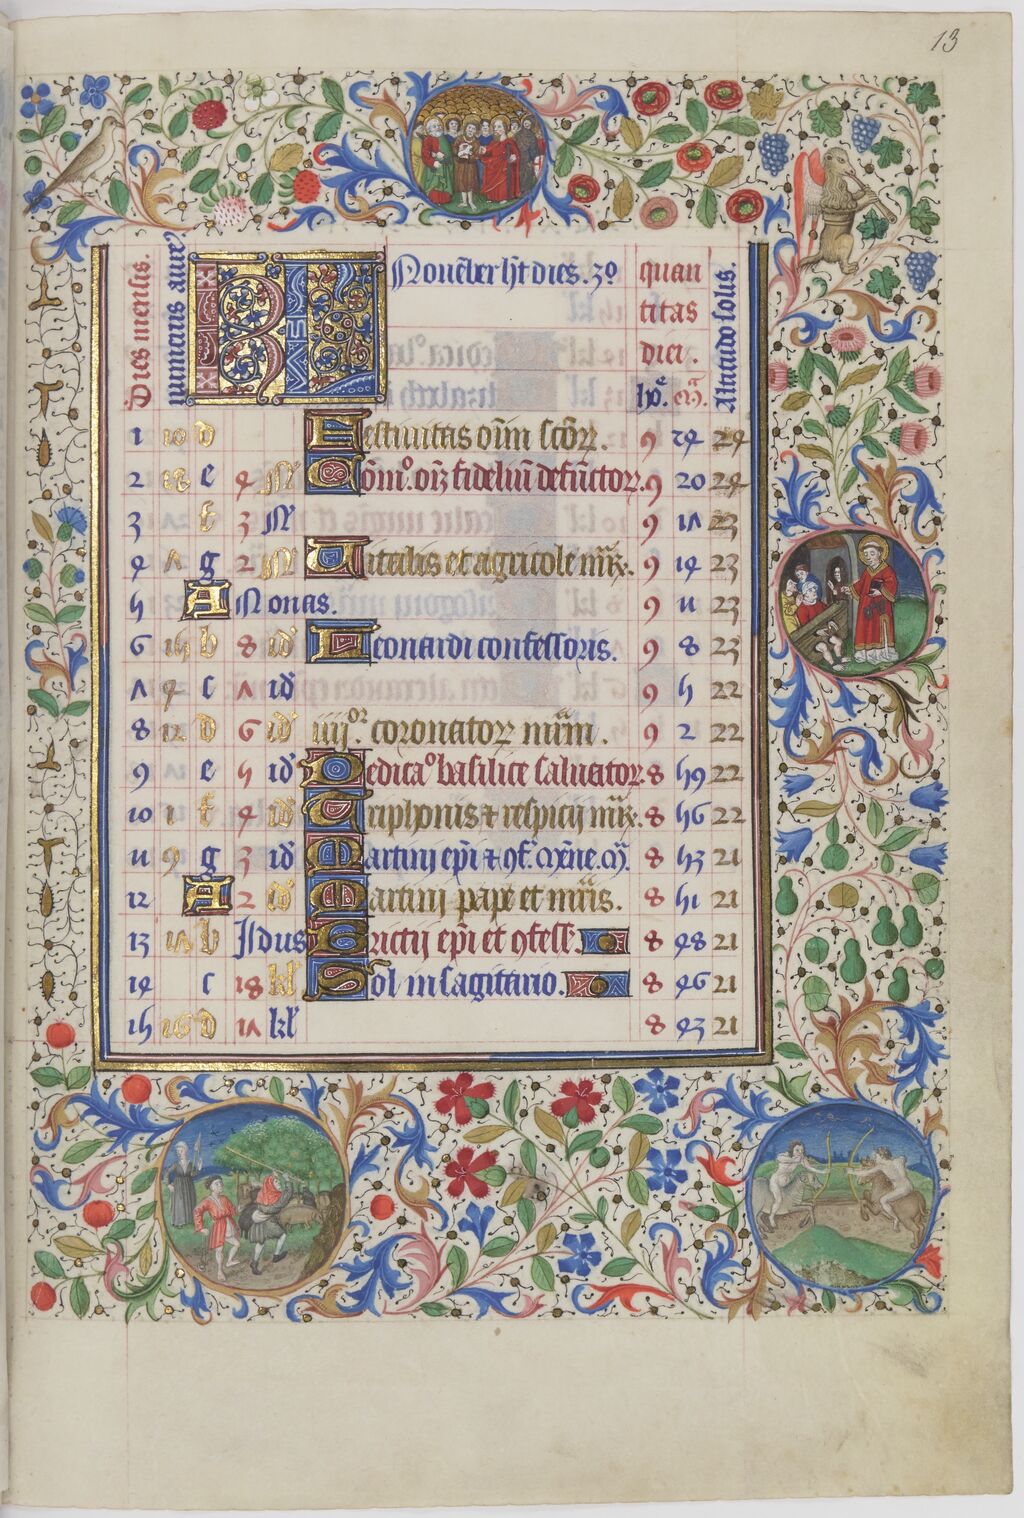 13
Dies mensis.
numerus aure9
KL Nouẽber hꝫt dies. 30
quan
titas
diei.
ho͛. em̃.
Altitudo solis.
1 19 d Festiuitas oĩm scõrꝝ 9 24 24
2 18 e 4 N Cõm̃o. oĩm fideliũ defũctorꝝ. 9 20 24
3 f 3 N 9 17 23
4 7 g 2 N Uitalis et agricole mr̃ꝝ. 9 14 23
5 A Nonas. 9 11 23
6 15 b 8 id Leonardi confessoris. 9 8 23
7 4 c 7 id 9 5 22
8 12 d 6 id iiii.or coronatorꝝ mr̃m. 9 2 22
9 e 5 id Dedicao basilice saluatorꝝ 8 59 22
10 1 f 4 id Triphonis ⁊ respicij mr̃ꝝ. 8 56 22
11 9 g 3 id Martini ep̃i ⁊ ꝯf. 8 53 21
12 A 2 id Martini pape et mr̃is. 8 51 21
13 17 b Jdus Brictij ep̃i et ꝯfess͛. 8 48 21
14 c 18 kl Sol in sagitario. 8 46 21
15 16 d 17 kl 8 43 21